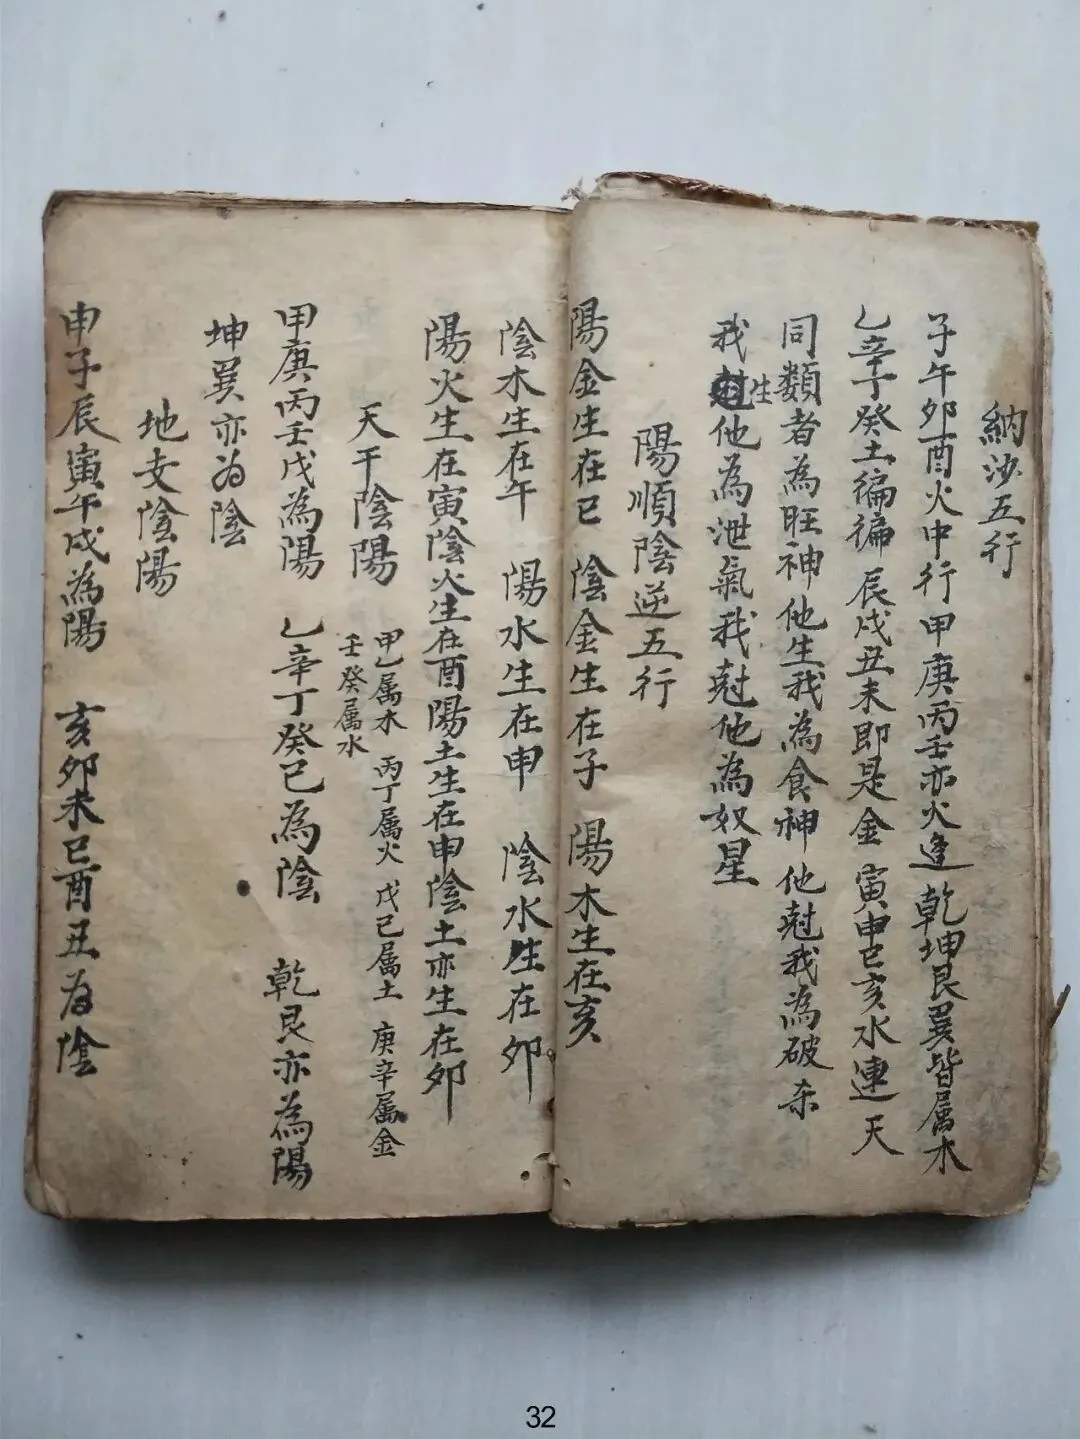 納沙五行
子午卯酉火中行甲庚丙壬亦火逢乾坤艮巽皆属木
乙辛丁癸土徧徧 辰戌丑未即是金 寅申巳亥水連天
同類者為旺神他生我為食神他尅我為破杀
我生他為泄氣我尅他為奴星
陽順陰逆五行
陽金生在巳 陰金生在子 陽木生在亥
陰木生在午 陽水生在申 陰水生在卯
陽火生在寅陰火生在酉陽土生在申陰土亦生在卯
天干陰陽 甲乙属木 丙丁属火 戊己属土 庚辛属金
壬癸属水
甲庚丙壬戊為陽 乙辛丁癸己為陰 乾艮亦為陽
坤巽亦为陰
地支陰陽
申子辰寅午戌為陽 亥卯未巳酉丑为陰
32